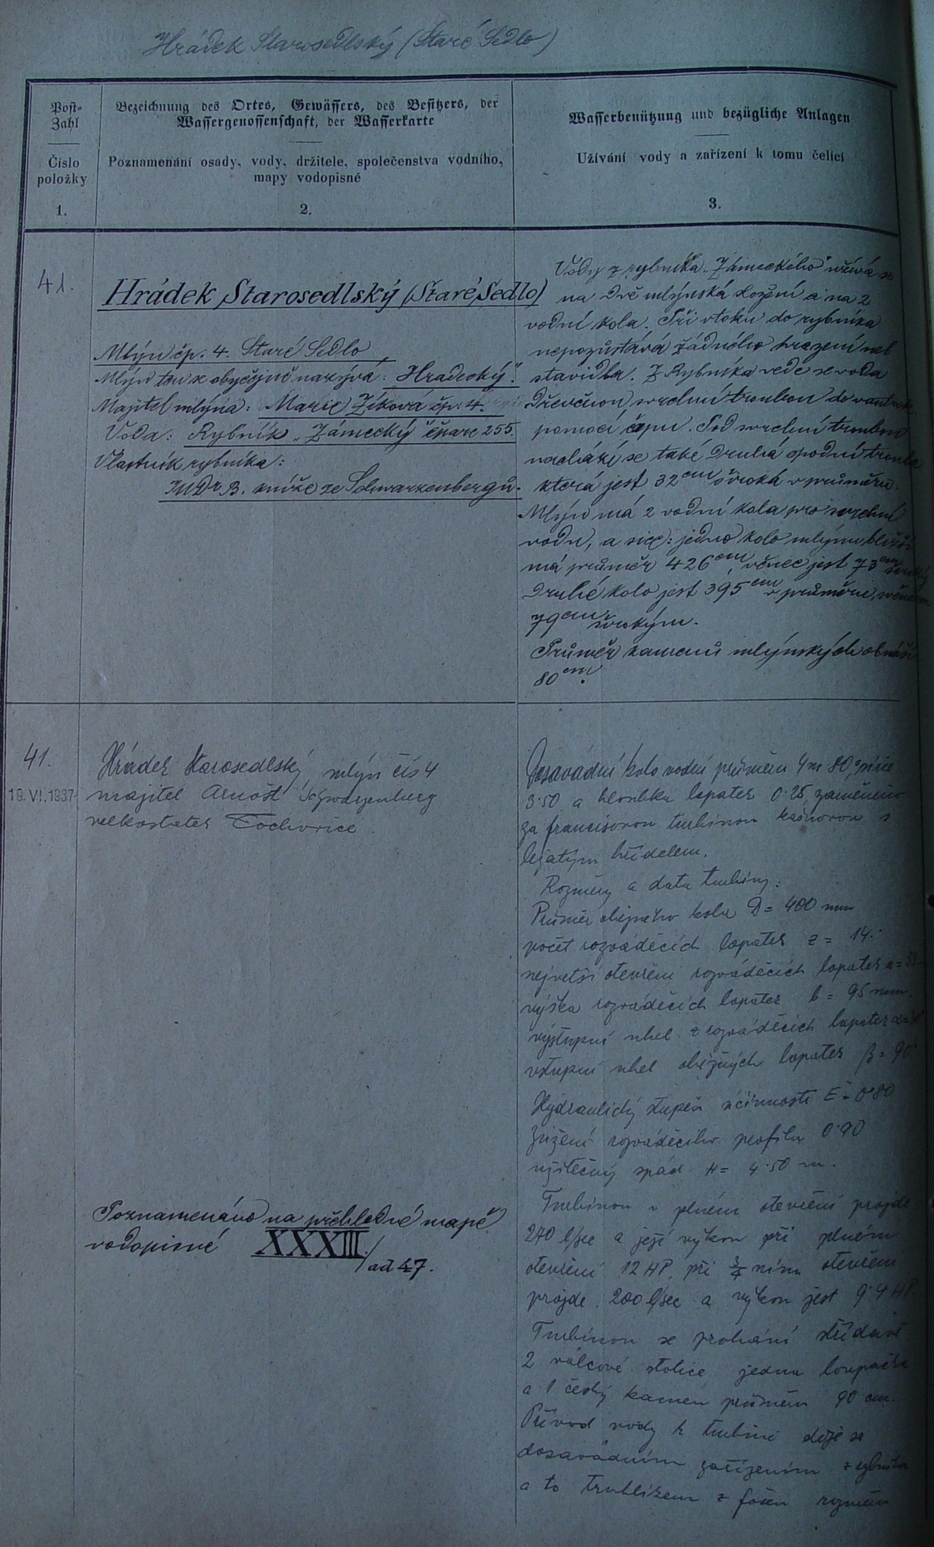 Hrádek Starosedlský (Staré Sedlo)
Post-
Zahl
Číslo
položky
1.
Bezeichnung des Ortes, Gewässers, des Besitzers, der
Wassergenossenschaft, der Wasserkarte
Poznamenání osady, vody, držitele, společenstva vodního,
mapy vodopisné
2.
Wasserbenützung und bezügliche Anlagen
Užívání vody a zařízení k tomu čelící
3.
41.
Hrádek Starosedlský (Staré Sedlo)
Mlýn čp. 4. Staré Sedlo
Mlýn ten se obyčejně nazývá: „Hradecký“.
Majitel mlýna: Marie Zíková čp. 4.
Voda: Rybník „Zámecký“ čparc 255.
Vlastník rybníka:
JUDr B. kníže ze Schwarzenbergů.
Vody z rybníka „Zámeckého“ užívá se
na dvě mlýnská složení a na 2
vodní kola. Při vtoku do rybníka
nepozůstává žádného hrazení neb
stavidla. Z Rybníka vede se voda
dřevěnou svrchní troubou do
pomocí čepu. Pod svrchní troubou
nachází se také druhá spodní trouba
ktera jest 32 cm široká v průměru.
Mlýn má 2 vodní kola pro svrchní
vodu, a sice: jedno kolo mlýnu bližší
má průměr 426 cm, věnec jest 73 cm
Druhé kolo jest 395 cm v průměru,
79 cm širokým.
Průměr kamenů mlýnských obnáší
80 cm.
41.
19. VI. 1937
Hrádek Starosedlský mlýn čís 4
majitel Arnošt Schwarzenberg
velkostatek Tochovice.
Dosavadní kolo vodní průměru 4 m 80, šíře
3·50 a hloubka lopatek 0·25 zaměněno
za francisovou turbinou kašnovou s
ležatým hřídelem.
Rozměry a data turbiny:
Průměr oběžného kola D = 400 mm
počet rozváděcích lopatek z = 14.
největší otevření rozváděcích lopatek a =
výška rozváděcích lopatek b = 95 mm.
výstupní uhel z rozváděcích lopatek
vstupní uhel oběžných lopatek β = 90°
Hydraulický stupeň účinnosti ε = 0·80
Zúžení rozváděcího profilu 0·90
užitečný spád H = 4·50 m.
Turbinou v plném otevření projde
270 l/sec a její výkon při plném
otevření 12 HP, při ¾ ním otevření
projde 200 l/sec a výkon jest 9·4 HP.
Turbinou se prohání střídavě
2 válcové stolice jedna loupačka
a 1 český kámen průměru 90 cm.
Přívod vody k turbině děje se
dosavadním zařízením z rybníka
a to truhlíkem z fošen rozměru
Poznamenáno na přehledné mapě
vodopisné XXXIII./ad 47.